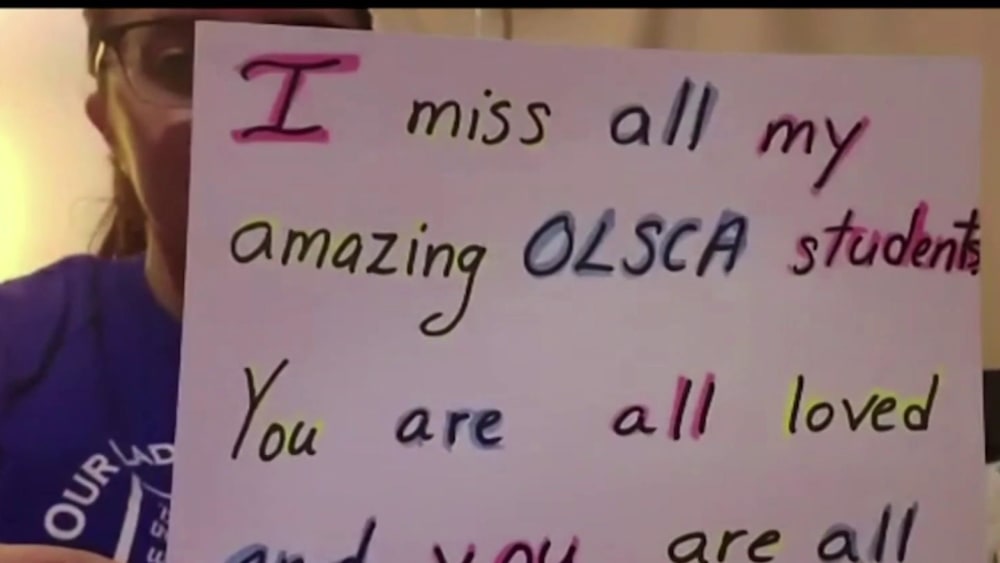 I miss all my
amazing OLSCA students
You are all loved
and you are all
OUR LAD